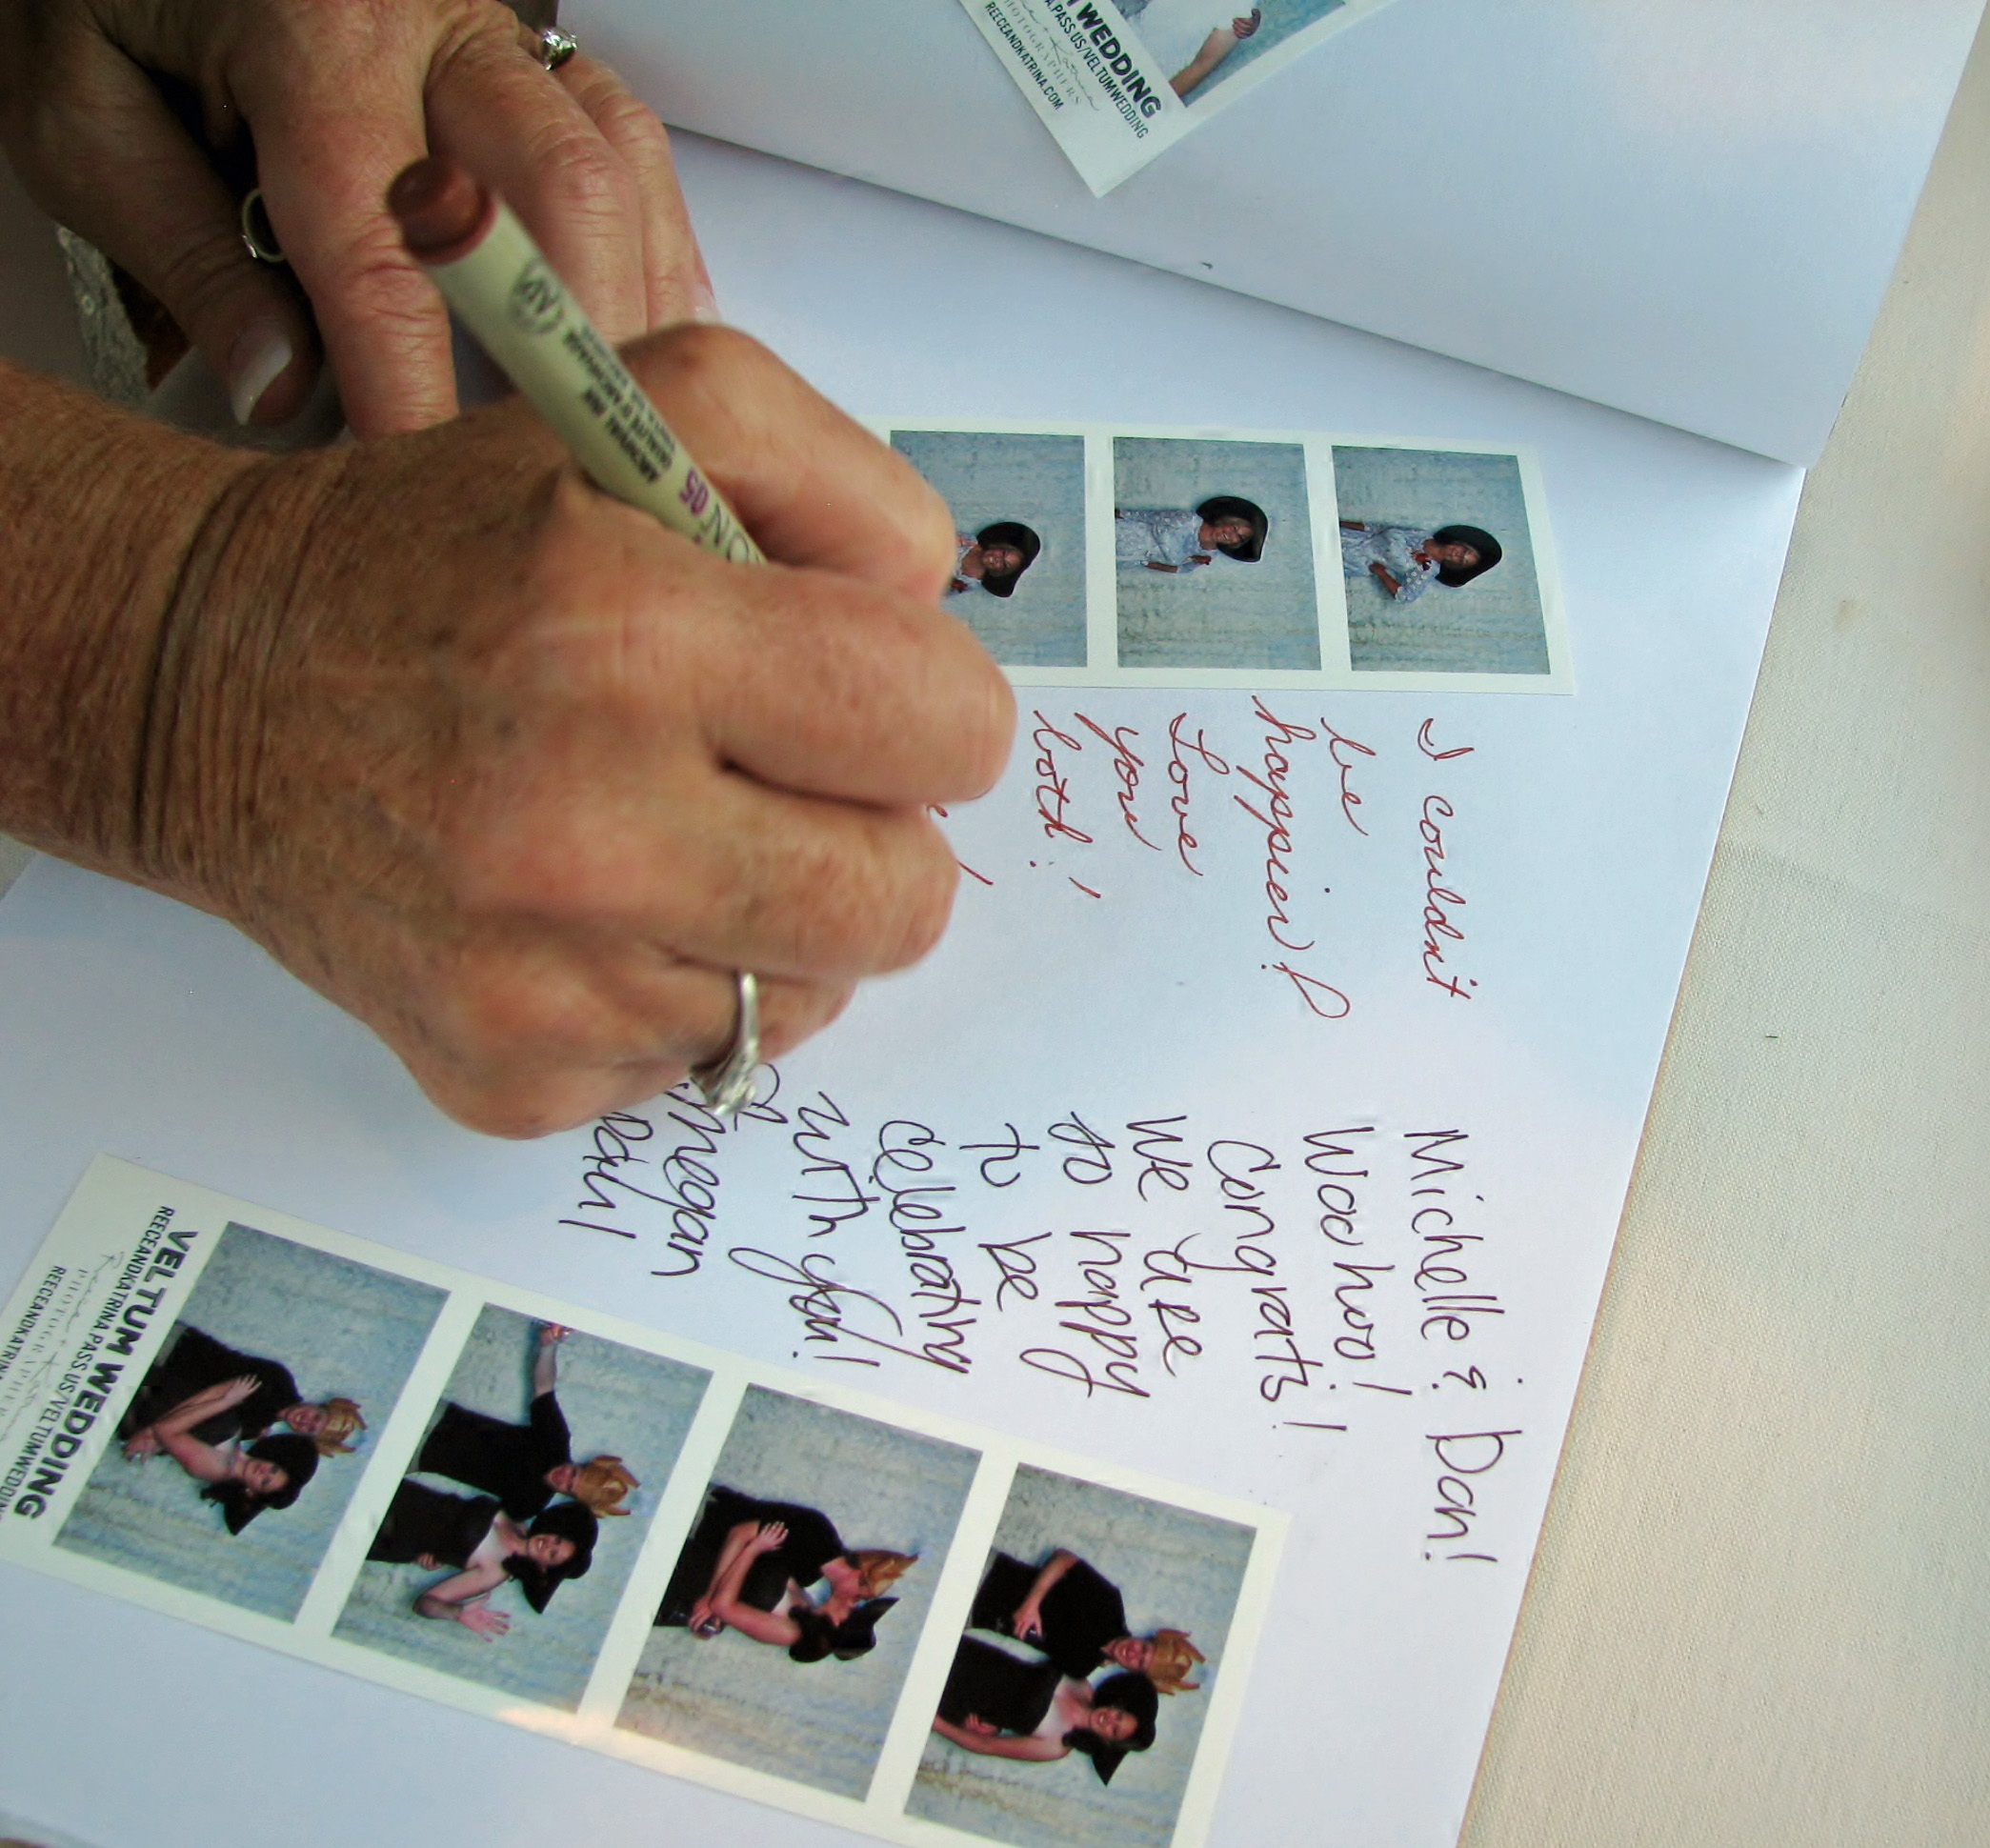 WEDDING
A.PASS.US/VELTUMWEDDING
PHOTOGRAPHERS
REECEANDKATRINA.COM
ARCHIVAL INK
05
I couldn't
be
happier!
Love
you
both!
Michelle & Dan!
Woohoo!
Congrats!
We are
so happy
to be
celebrating
with you!
Megan
VELTUM WEDDING
REECEANDKATRINA.PASS.US/VELTUMWEDDING
PHOTOGRAPHERS
REECEANDKATRINA